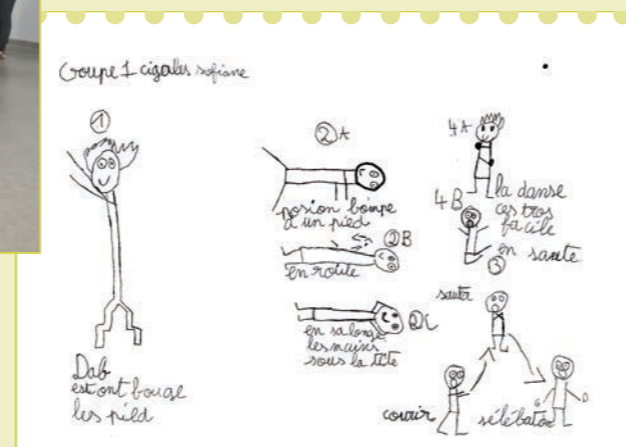 Groupe 1 cigales sofiane
1
Dab
est ont bouge
les pied
2 A
posion pompe
a un pied
2B
en roule
2C
en salonge
les mains
sous la tête
4A
la danse
ces tros
facile
4B
en saute
3
sauter
courir